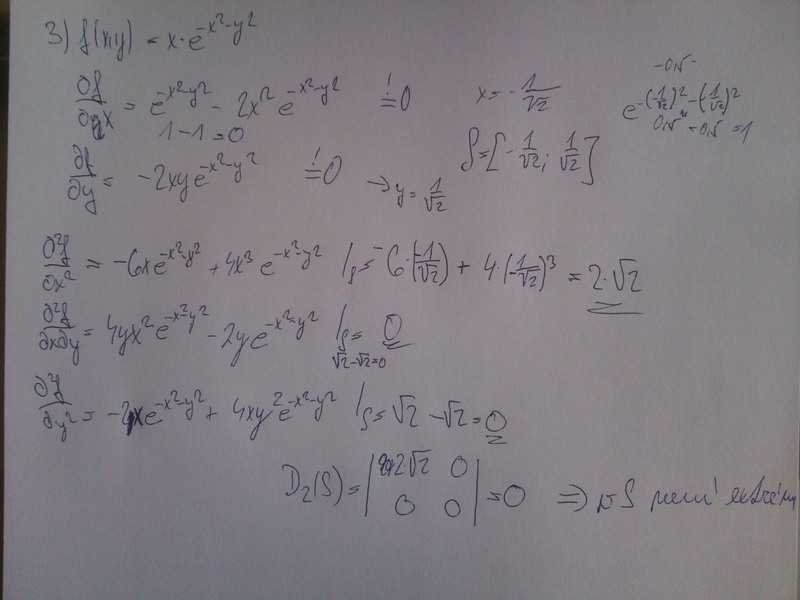 3) f(x,y) = x·e^{-x²-y²}
∂f/∂x = e^{-x²-y²} - 2x² e^{-x²-y²} =! 0 x = -1/√2
1-1=0
-0,5-
e^{-(1/√2)² - (1/√2)²}
0,5 - 0,5 = 1
∂f/∂y = -2xye^{-x²-y²} =! 0 → y = 1/√2 S = [-1/√2; 1/√2]
∂²f/∂x² = -6xe^{-x²-y²} + 4x³ e^{-x²-y²} |S = -6·(-1/√2) + 4·(-1/√2)³ = 2·√2
∂²f/∂x∂y = 4yx² e^{-x²-y²} - 2ye^{-x²-y²} |S = 0
√2-√2=0
∂²f/∂y² = -2xe^{-x²-y²} + 4xy² e^{-x²-y²} |S = √2 - √2 = 0
D₂(S) = |2√2 0| = 0 ⇒ v S není extrém
|0 0|